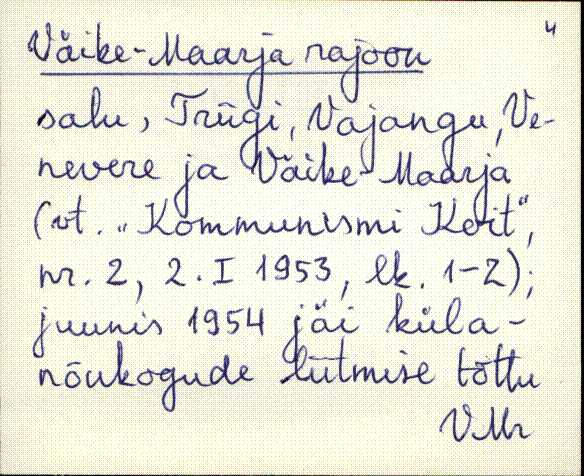 4
Väike-Maarja rajoon
salu, Triigi, Vajangu, Ve-
nevere ja Väike-Maarja
(vt. „Kommunismi Koit",
nr. 2, 2. I 1953, lk. 1-2);
juunis 1954 jäi küla-
nõukogude liitmise tõttu
VMr